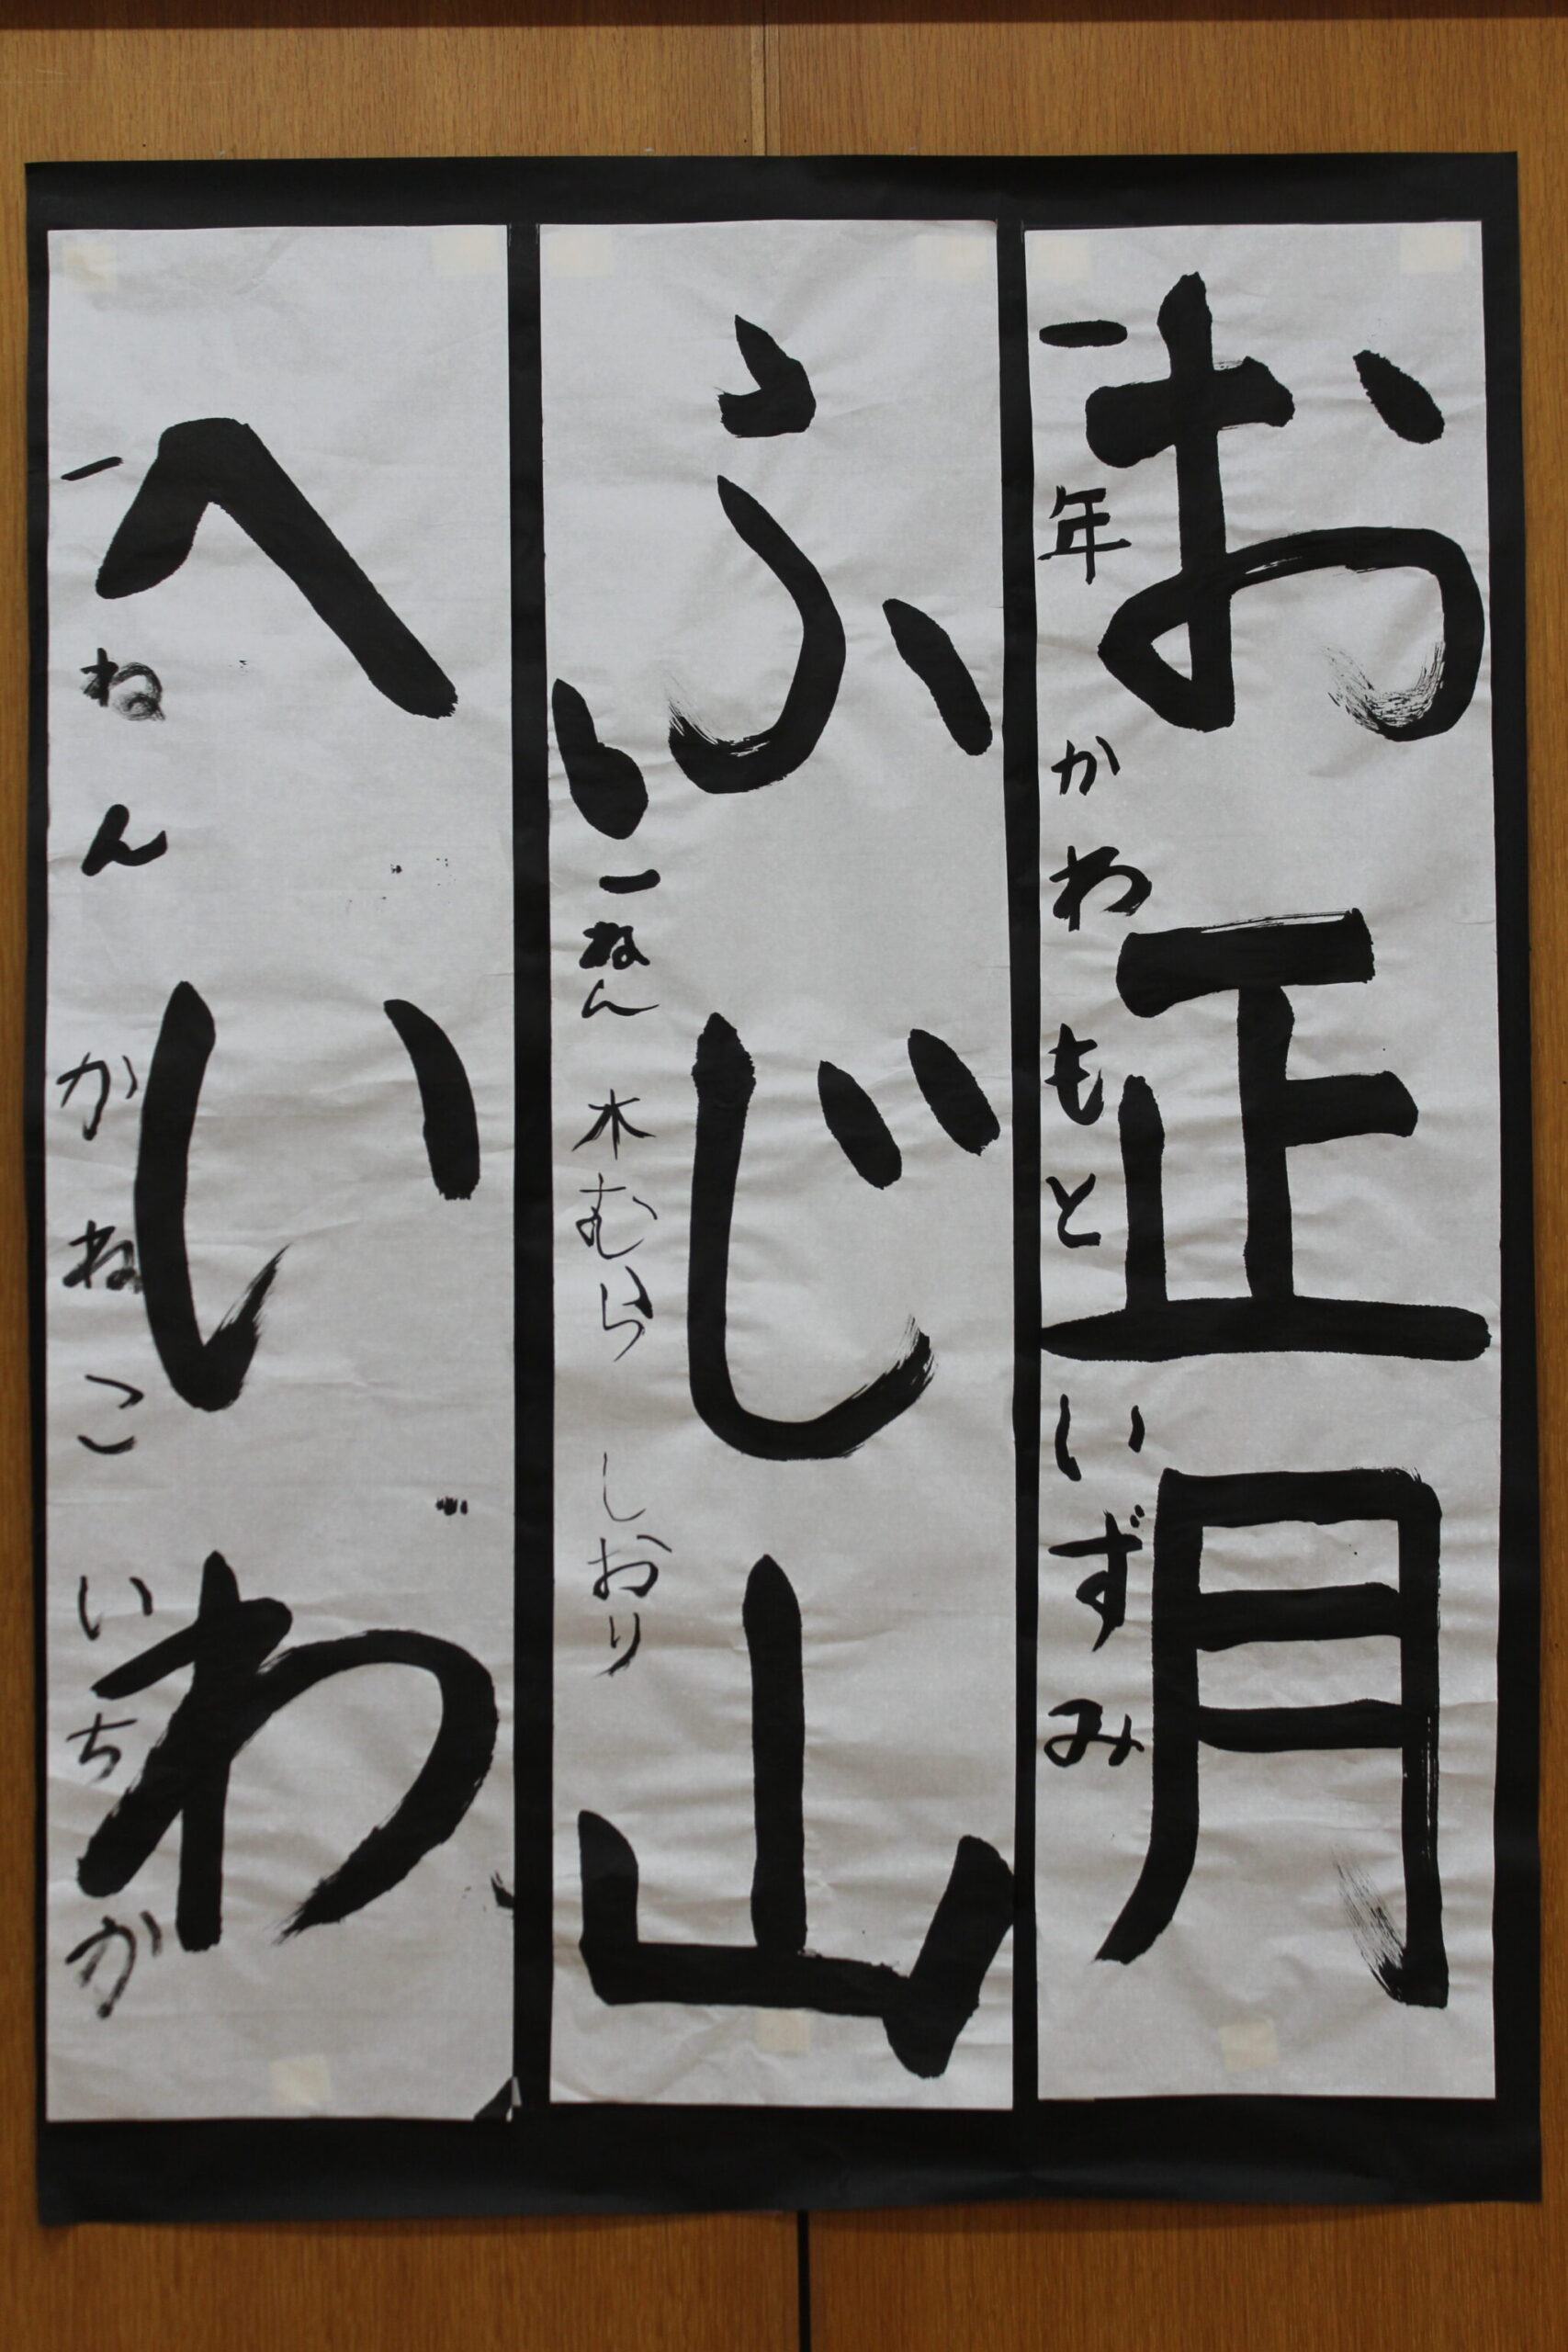 お正月
一年 かわもと いずみ
ふじ山
一ねん 木むら しおり
へいわ
一ねん かねこ いちか